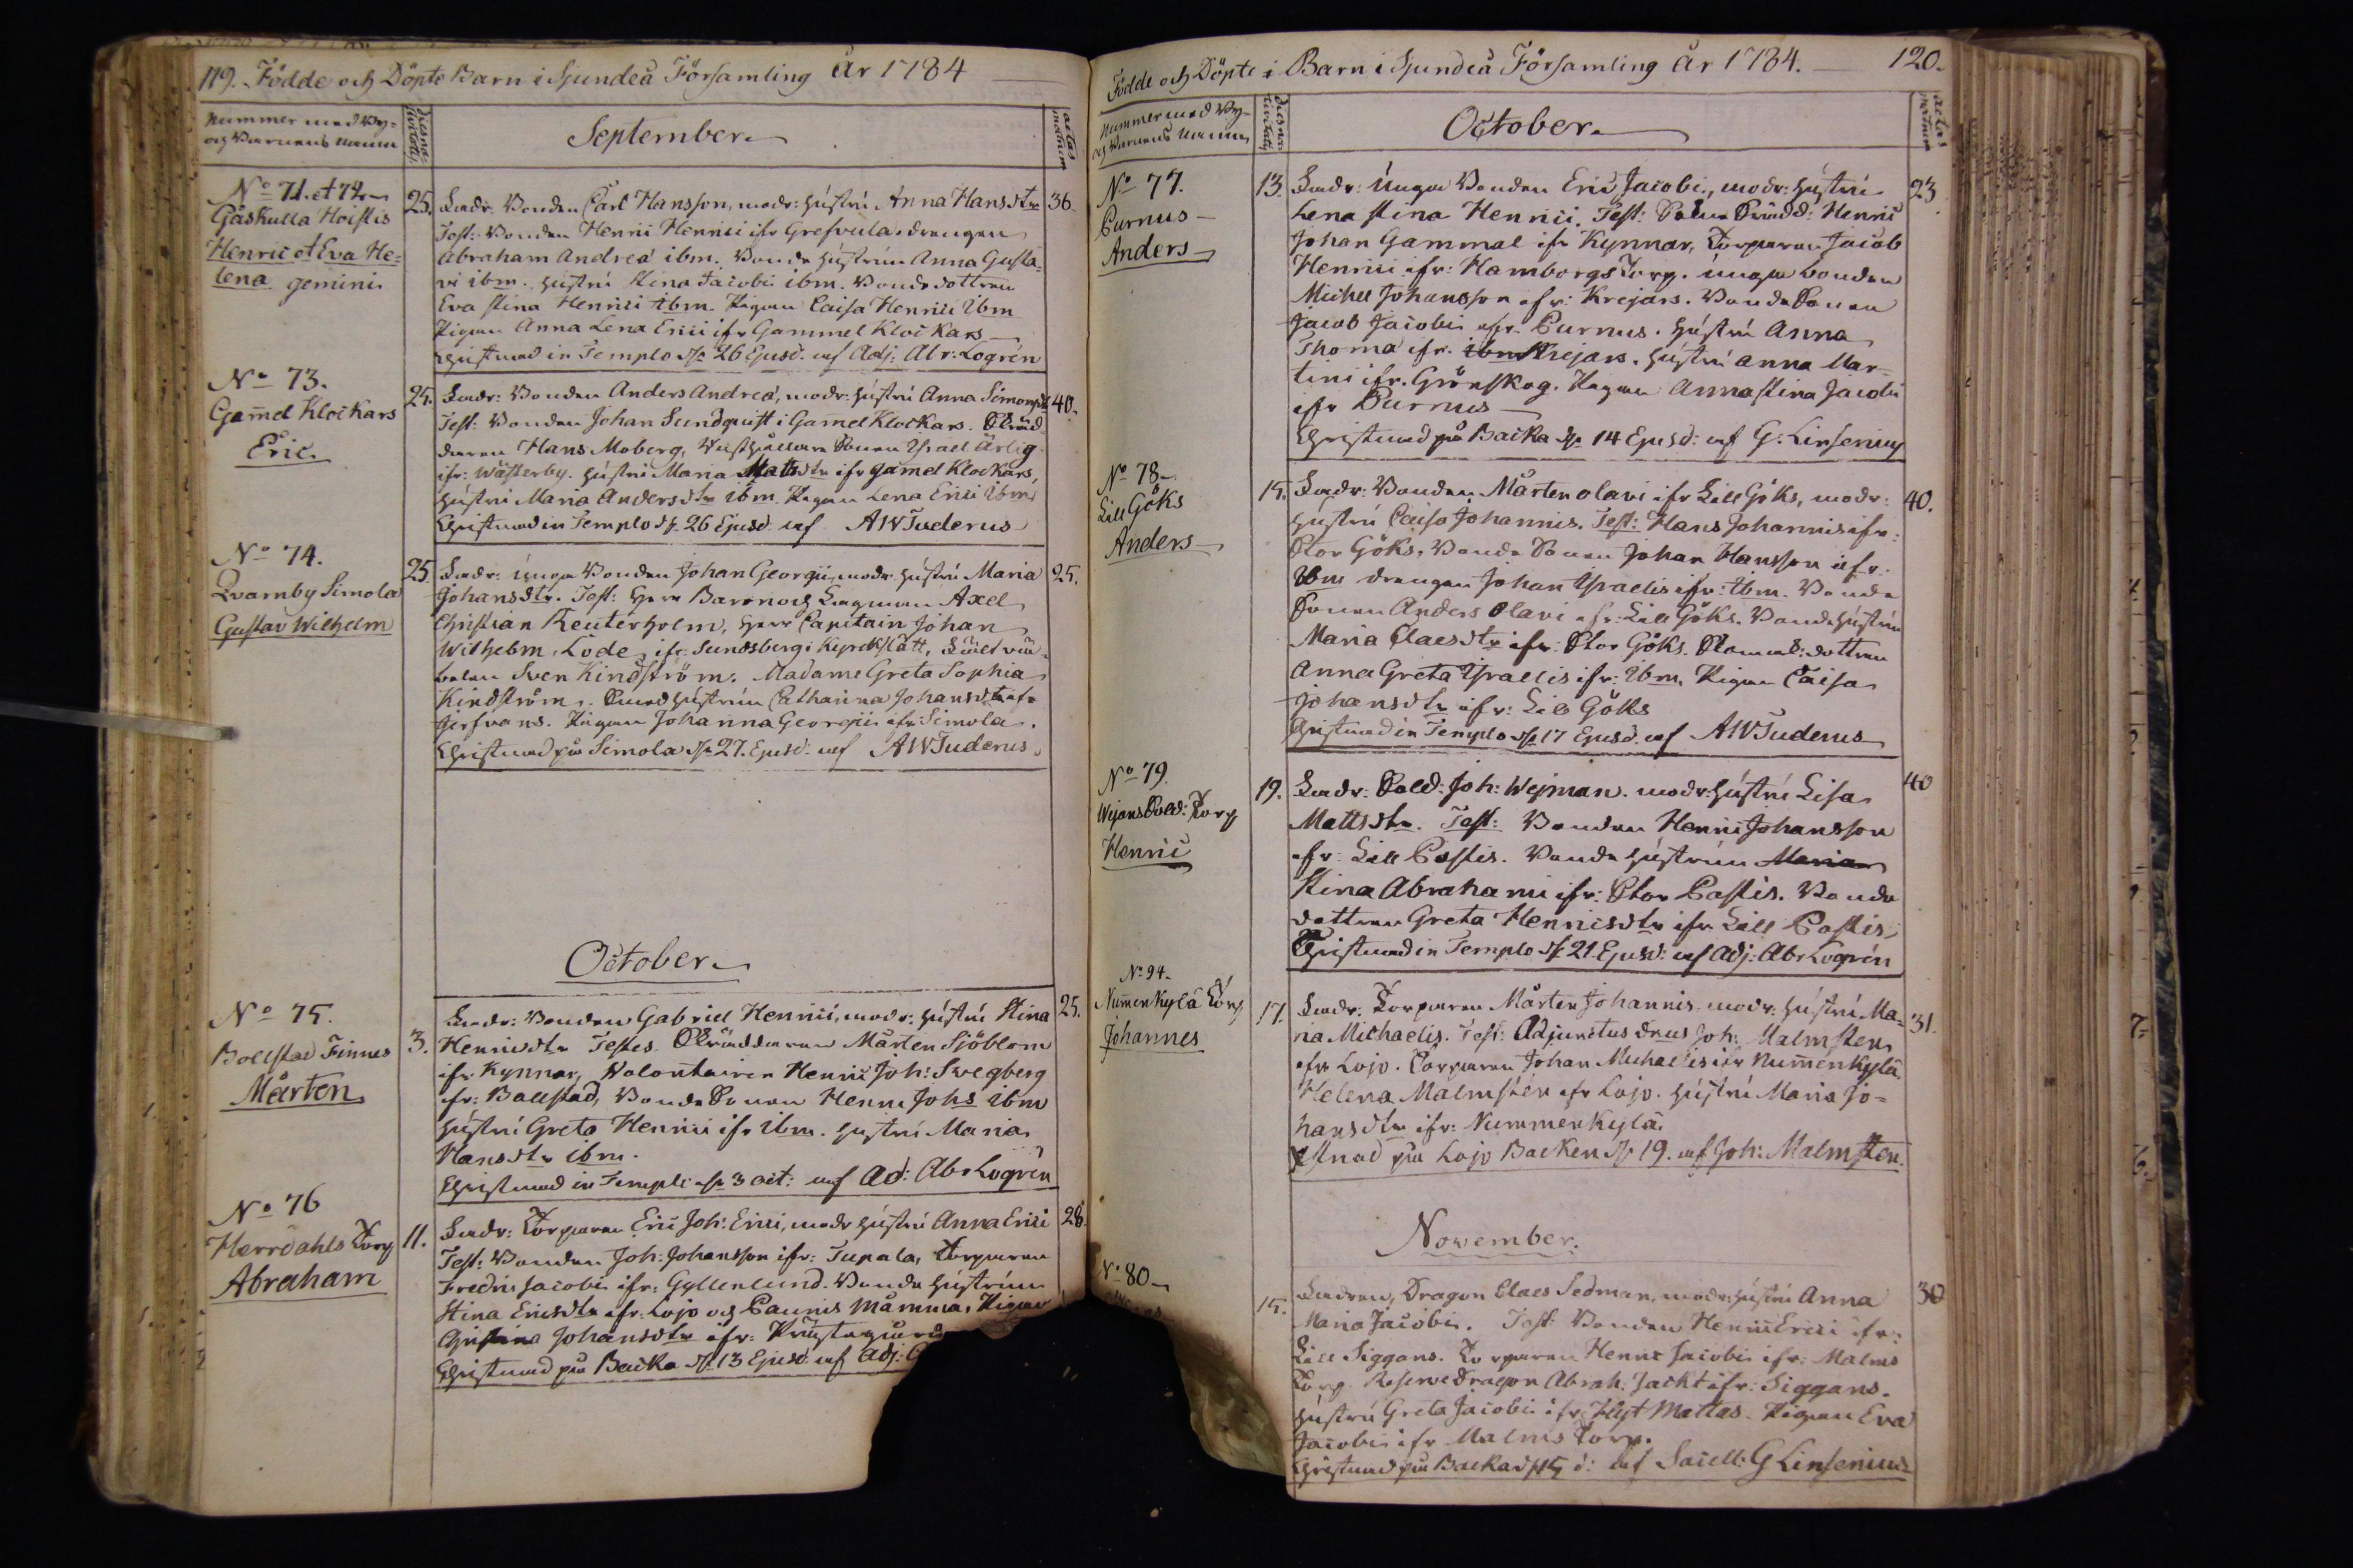 119. Födde och Döpte Barn i Sjundeå Församling År 1784
Nummer med By=
och Barnens Namn
September.
aetas
matrum
No 71. et 72.
Gåskulla Hoistis
Henric et Eva He=
lena gemini
25. Fadr. Bonden Carl Hansson, modr: hústrú Anna Hansdtr 36
Test: Bonden Henric Henrici ifr Grefvula. drengen
Abraham Andreá ibm. Bonde hústrún Anna Gusta=
vi ibm. hustrú Stina Jacobi ibm. Bonde dottren
Eva Stina Henrici ibm. Pigan Caisa Henrici ibm
Pigan Anna Lena Erici ifr Gammel Klockars
Christnad in Templo d. 26 Ejusd. af Adj: Abr: Logrén
No 73.
Gam̄el Klockars
Eric.
25. Fadr: Bonden Anders Andreá, modr: hústrú Anna Simonsdtr 40.
Test: Bonden Johan Sundquist i Gam̄el Klockars. Skräd
daren Hans Moberg, Sonen Israel Ärlig
ifr: Wästerby. hústrú Maria Mattsdtr ifr gamel Klockars,
hústrú Maria Andersdtr ibm. Pigan Lena Erici ibm.
Christnad in Templo d. 26 Ejusd: af AWTuderus
No 74.
Qvarnby Simola
Gustav Wilhelm
25. Fadr: únga Bonden Johan Georgii, modr hústrú Maria 25.
Johansdtr. Test: Herr Baron och Lagman Axel
Christian Reuterholm, Herr Capitain Johan
Wilhelm Lode ifr: Sundsberg i Kyrckslätt,
Sven Kindström. Madame Greta Sophia
Kindström. hústrún Catharina Johansdtr ifr
Gerfvans. Pigan Johanna Georgii ifr Simola.
Christnad på Simola d. 27. Ejusd: af AWTuderus.
October.
No 75.
Bollstad Finnes
Mårten
3. Fadr: Bonden Gabriel Henrici, modr: hústrú Stina 25.
Henricsdtr Testes. Skräddaren Mårten Sjöblom
ifr Kynnar, Volontairen Henric Joh: Swegberg
ifr: Bollstad, Bonde Sonen Henric Johs ibm
hústrú Greta Henrici ifr ibm. hustrú Maria
Hansdtr ibm.
Christnad in Templo d. 3 oct: af Ad: Abr Logrén
No 76
Herrdahls Torp
Abraham
11. Fadr: Torparen Eric Joh: Erici, modr hústrú Anna Erici 28.
Test: Bonden Joh: Johansson ifr: Tupala, Torparen
Fredric Jacobi ifr: Gyllenlund. Bonde hústrún
Stina Ericsdtr ifr: Lojo och Paunis Mamma, Pigan
Christina Johansdtr ifr: Prästegård
Christnad på Backa d. 13 Ejusd: af Adj:
Födde och Döpte i Barn i Sjundeå Församling År 1784. 120.
Nummer med By-
och Barnens Namn
October.
aetas
matrum
No 77.
Purnus
Anders
13. Fadr: únga Bonden Eric Jacobi, modr: hústrú 23.
Lena Stina Henrici. Test: Henric
Johan Gammal ifr Kynnar, Torparen Jacob
Henrici ifr: Hamborgs Torp. únga bonden
Michel Johansson ifr: Krejars. Bonde Sonen
Jacob Jacobi ifr. Purnus. hústrú Anna
Thoma ifr. Krejars. hústrú Anna Mar=
tini ifr. Grönskog. Pigan Anna Stina Jacobi
ifr Purnus
Christnad på Backa d. 14 Ejusd: af G: Linsenius
No 78.
Lill Göks
Anders
15. Fadr: Bonden Mårten Olavi ifr Lill Göks, modr: 40.
hústrú Caisa Johannis. Test: Hans Johannis ifr:
Stor Göks, Bonde Sonen Johan Hansson ifr:
Ibm drengen Johan Israelis ifr: ibm. Bonde
Sonen Anders Olavi ifr: Lill Göks. Bonde hústrún
Maria Claesdtr ifr: Stor Göks. dottren
Anna Greta Israelis ifr: ibm, Pigan Caisa
Johansdtr ifr: Lill Göks
Christnad in Templo d. 17 Ejusd. af AWTuderus
No 79.
Wejans Sold: Torp
Henric
19. Fadr: Sold: Joh: Wejman. modr: hústrú Lisa 40
Mattsdtr. Test: Bonden Henric Johansson
ifr: Lill Pastis. Bonde hústrún Maria
Stina Abrahami ifr: Stor Pastis. Bonde
dottren Greta Henricsdtr ifr Lill Pastis
Christnad in Templo d. 21 Ejusd: af Adj: Abr Logrén
No 94.
Num̄enkylä Torp
Johannes
17. Fadr: Torparen Mårten Johannis modr: hústrú Ma= 31.
ria Michaelis. Test: Adjunctus dnus Joh: Malmsten
ifr Lojo. Torparen Johan Michaelis ifr Num̄enkylä.
Helena Malmstén ifr Lojo. hústrú Maria Jo=
hansdtr ifr: Nummenkylä.
Xstnad på Lojo Backen d. 19. af Joh: Malmsten.
November.
No 80
15. Fadren, Dragon Claes Sedman, modr: hústrú Anna 30
Maria Jacobi. Test: Bonden Henric Erici ifr:
Lill Siggans. Torparen Henric Jacobi ifr: Malms
Torp. Reserve dragon Abrah: Jackt ifr: Siggans.
hústrú Greta Jacobi ifr Hyt Mattas. Pigan Eva
Jacobi ifr Malms Torp.
Christnad på Backa d. 15 d: af Sacell: G Linsenius